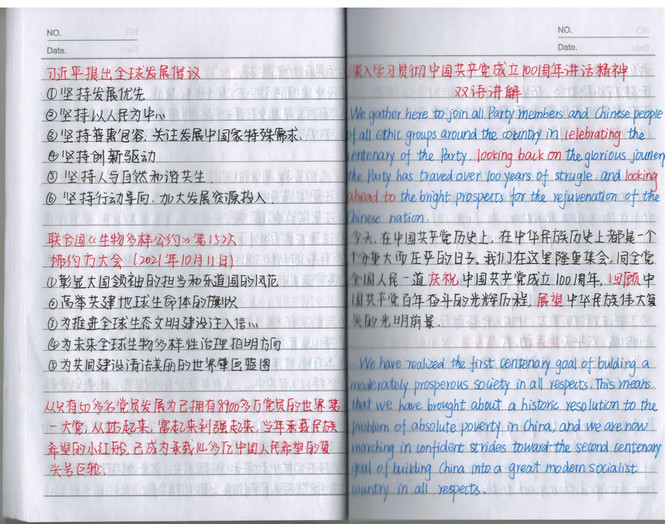 NO.
Date.
习近平提出全球发展倡议
①坚持发展优先
②坚持以人民为中心
③坚持普惠包容,关注发展中国家特殊需求.
④坚持创新驱动
⑤坚持人与自然和谐共生
⑥坚持行动导向,加大发展资源投入.
联合国《生物多样公约》第15次
缔约方大会(2021年10月11日)
①彰显大国领袖的担当和东道国的风范
②高举共建地球生命体的旗帜
③为推进全球生态文明建设注入信心
④为未来全球生物多样性治理指明方向
⑤为共同建设清洁美丽的世界擘画蓝图
从只有50多名党员发展为已拥有8900多万党员的世界第
一大党,从站起来,富起来到强起来,当年承载民族
希望的小红船,已成为承载14多万中国人民希望的复
兴号巨轮.
NO.
Date.
深入学习贯彻中国共产党成立100周年讲话精神
双语讲解
We gather here to join all Party members and Chinese people
of all ethic groups around the country in celebrating the
centenary of the Party. looking back on the glorious journey
the Party has traved over 100 years of strugle. and looking
ahead to the bright prospects for the rejuvenation of the
Chinese nation.
今天,在中国共产党历史上,在中华民族历史上都是一个
十分重大而庄严的日子。我们在这里隆重集会,同全党
全国人民一道庆祝中国共产党成立100周年,回顾中
国共产党百年奋斗的光辉历程,展望中华民族伟大复
兴的光明前景.
We have realized the first centenary goal of bulding a
moderately prosperous society in all respects. This means
that we have brought about a historic resolution to the
problem of absolute poverty in China, and we are now
marching in confident strides toward the second centenary
goal of building China into a great modern socialist
country in all respects.